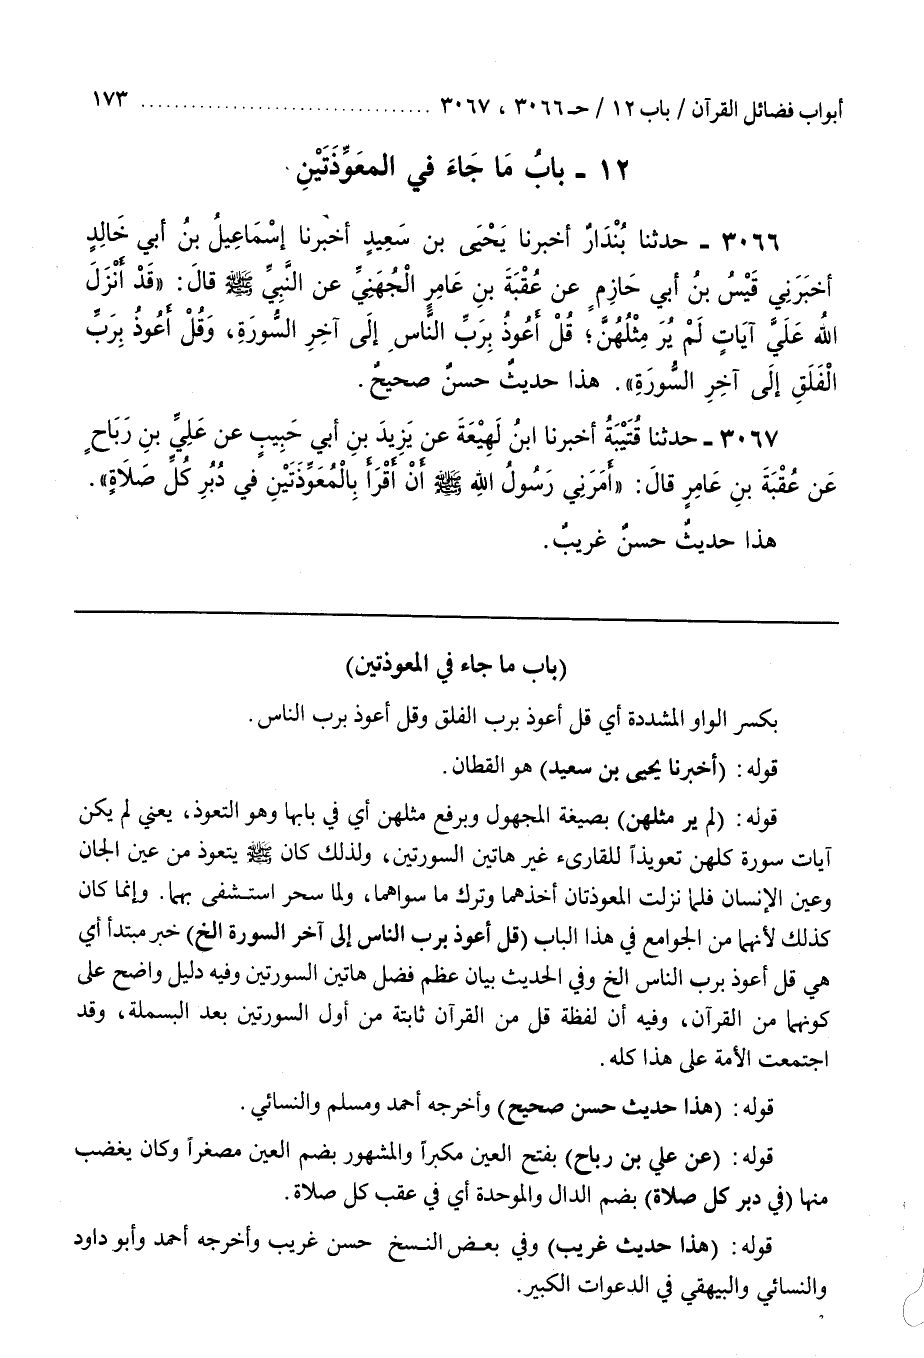 أبواب فضائل القرآن / باب ١٢ / حـ ٣٠٦٦ ، ٣٠٦٧ ................................ ١٧٣
١٢ - بابُ مَا جَاءَ في المعَوِّذَتَيْنِ
٣٠٦٦ - حدثنا بُنْدَارٌ أخبرنا يَحْيَى بن سَعِيدٍ أخبرنا إسْمَاعِيلُ بنُ أبي خَالِدٍ
أخبَرَنِي قَيْسُ بنُ أبي حَازِمٍ عن عُقْبَةَ بنِ عَامِرٍ الْجُهَنِيِّ عن النَّبِيِّ ﷺ قالَ: «قَدْ أَنْزَلَ
الله عَلَيَّ آيَاتٍ لَمْ يُرَ مِثْلُهُنَّ؛ قُلْ أَعُوذُ بِرَبِّ النَّاسِ إلَى آخِرِ السُّورَةِ، وَقُلْ أَعُوذُ بِرَبِّ
الْفَلَقِ إلَى آخِرِ السُّورَةِ». هذا حديثٌ حسنٌ صحيحٌ.
٣٠٦٧ - حدثنا قُتَيْبَةُ أخبرنا ابنُ لَهِيْعَةَ عن يَزِيدَ بنِ أبي حَبِيبٍ عن عَلِيِّ بنِ رَبَاحٍ
عَن عُقْبَةَ بنِ عَامِرٍ قالَ: «أَمَرَنِي رَسُولُ اللهِ ﷺ أَنْ أَقْرَأَ بِالْمُعَوِّذَتَيْنِ في دُبُرِ كُلِّ صَلَاةٍ».
هذا حديثٌ حسنٌ غريبٌ.
(باب ما جاء في المعوذتين)
بكسر الواو المشددة أي قل أعوذ برب الفلق وقل أعوذ برب الناس.
قوله: (أخبرنا يحيى بن سعيد) هو القطان.
قوله: (لم ير مثلهن) بصيغة المجهول وبرفع مثلهن أي في بابها وهو التعوذ، يعني لم يكن
آيات سورة كلهن تعويذاً للقارىء غير هاتين السورتين، ولذلك كان ﷺ يتعوذ من عين الجان
وعين الإنسان فلما نزلت المعوذتان أخذهما وترك ما سواهما، ولما سحر استشفى بهما. وإنما كان
كذلك لأنهما من الجوامع في هذا الباب (قل أعوذ برب الناس إلى آخر السورة الخ) خبر مبتدأ أي
هي قل أعوذ برب الناس الخ وفي الحديث بيان عظم فضل هاتين السورتين وفيه دليل واضح على
كونهما من القرآن، وفيه أن لفظة قل من القرآن ثابتة من أول السورتين بعد البسملة، وقد
اجتمعت الأمة على هذا كله.
قوله: (هذا حديث حسن صحيح) وأخرجه أحمد ومسلم والنسائي.
قوله: (عن علي بن رباح) بفتح العين مكبراً والمشهور بضم العين مصغراً وكان يغضب
منها (في دبر كل صلاة) بضم الدال والموحدة أي في عقب كل صلاة.
قوله: (هذا حديث غريب) وفي بعض النسخ حسن غريب وأخرجه أحمد وأبو داود
والنسائي والبيهقي في الدعوات الكبير.